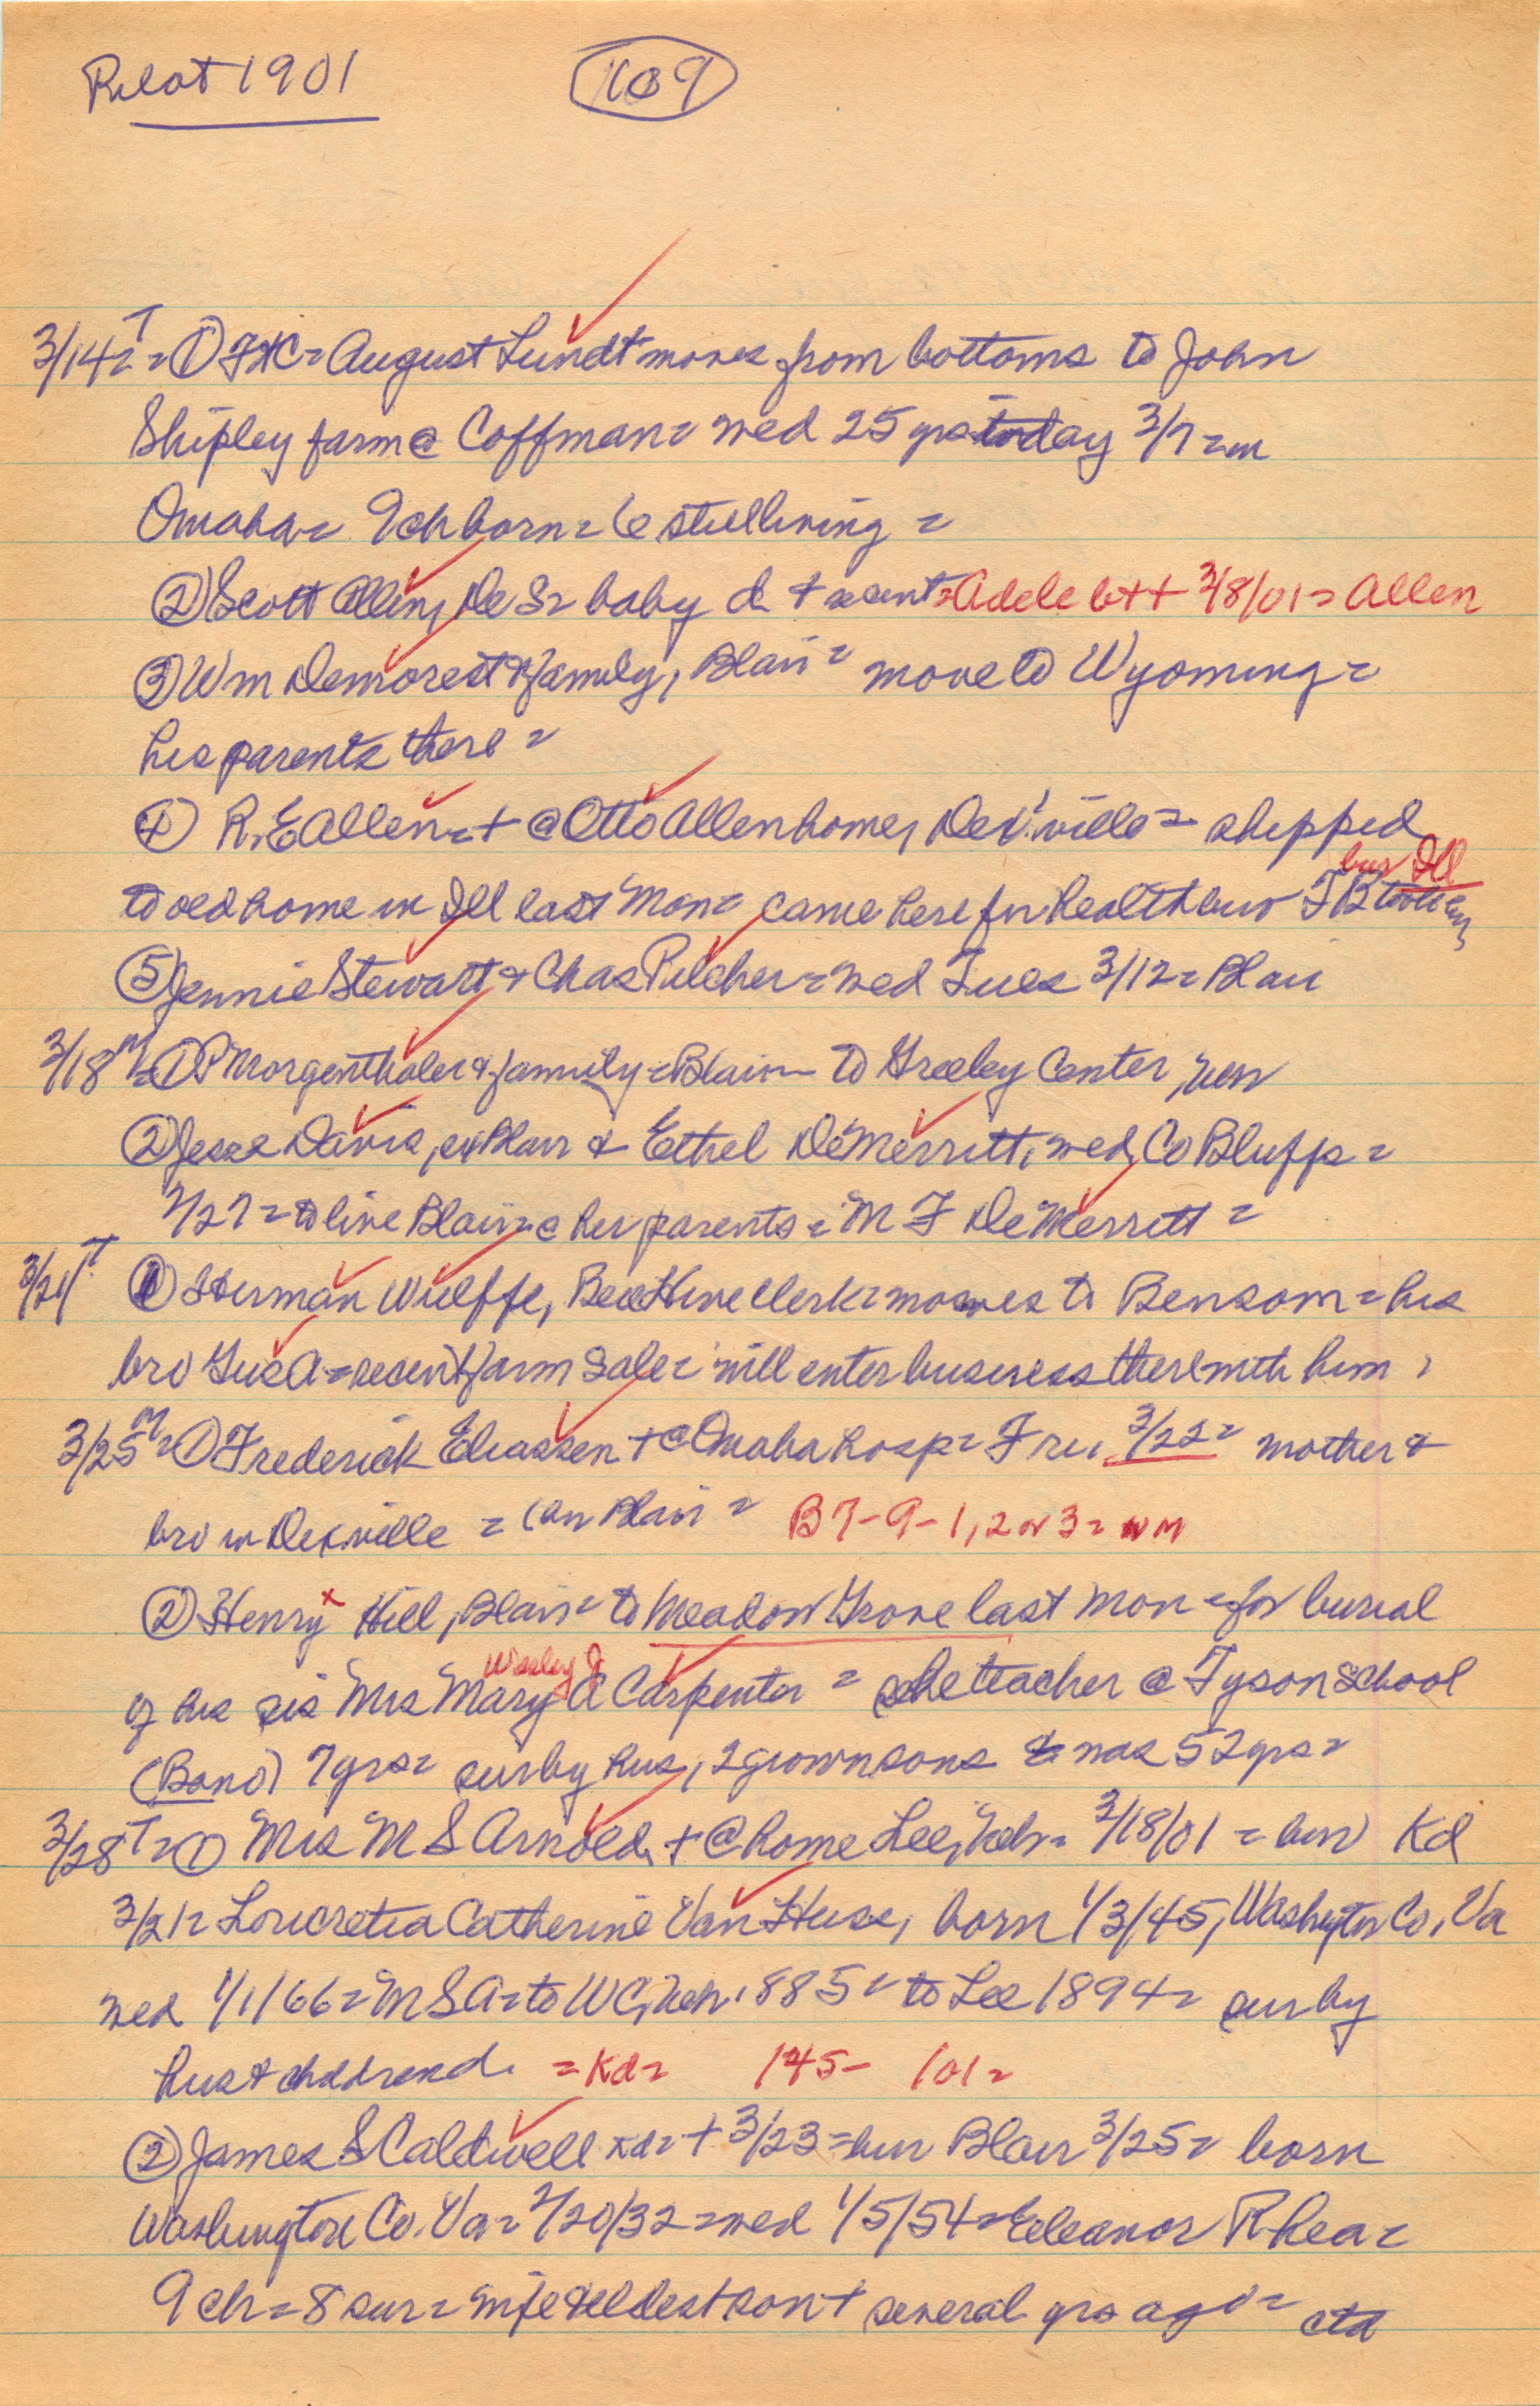 Pilot 1901 109
3/14 T = ① Ft C = August Lundt moves from bottoms to John
Shipley farm @ Coffman = wed 25 yrs today 3/7 = in
Omaha = 9 ch born = 6 still living =
② Scott Allen, De S = baby d + recent = Adele b++ 3/8/01 = Allen
③ Wm Demorest & family, Blair = move to Wyoming =
his parents there =
④ R.E Allen = + @ Otto Allen home, De V.ville = shipped
bur Ill
to old home in Ill last Mon = came here for health bur TB
⑤ Jennie Stewart & Chas Pilcher = wed Tues 3/12 = Blair
3/18 M = ① P Morgenthaler & family = Blair - to Greeley Center, Neb
② Jesse Davis, ex Blair & Ethel DeMerritt, wed, Co Bluffs =
2/27 = to live Blair = @ her parents = M F DeMerrett =
3/21 T ① Herman Wulffe, Bee Hive clerk = moves to Bensom = his
bro Gus A = recent farm sale = will enter business there with him =
3/25 M = ① Frederick Eliassen + @ Omaha hosp = Fri, 3/22 = mother &
bro in Dexville = (bur Blair = B 7-9-1, 2 or 3 = NM
② Henry x Hill, Blair = to Meadow Grove last Mon = for burial
Wesley J
of his sis Mrs Mary A Carpenter = she teacher @ Tyson School
(Bono) 7 yrs = sur by hus, 2 grown sons & was 52 yrs =
3/28 T = ① Mrs M S Arnold, + @ home Lee, Neb = 3/18/01 = bur Kd
3/21 = Loucretia Catherine Van Huse, born 1/3/45, Washington Co, Va
wed 1/1/66 = M S A = to WC, Neb. 1885 = to Lee 1894 = sur by
hus & children d. = Kd = 145 - 101 =
② James S Caldwell Kd = + 3/23 = bur Blair 3/25 = born
Washington Co. Va = 2/20/32 = wed 1/5/54 = Eleanor Rhea =
9 ch = 8 sur = wife & eldest son + several yrs ago = ctd